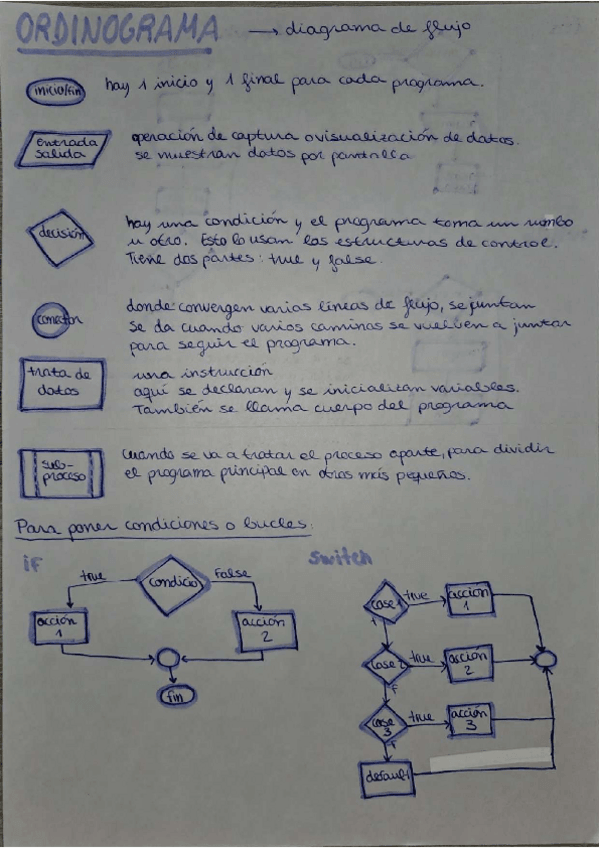 ORDINOGRAMA → diagrama de flujo
inicio/fin
hay 1 inicio y 1 final para cada programa.
entrada
salida
operación de captura o visualización de datos.
se muestran datos por pantalla
decisión
hay una condición y el programa toma un rumbo
u otro. Esto lo usan las estructuras de control.
Tiene dos partes: true y false.
conector
donde convergen varias líneas de flujo, se juntan
se da cuando varios caminos se vuelven a juntar
para seguir el programa.
trata de
datos
una instrucción
aquí se declaran y se inicializan variables.
También se llama cuerpo del programa
sub-
proceso
Cuando se va a tratar el proceso aparte, para dividir
el programa principal en otros más pequeños.
Para poner condiciones o bucles:
if
true
condicio
False
acción
1
acción
2
fin
switch
case 1
true
acción
1
F
case 2
true
acción
2
F
case
3
true
acción
3
F
default